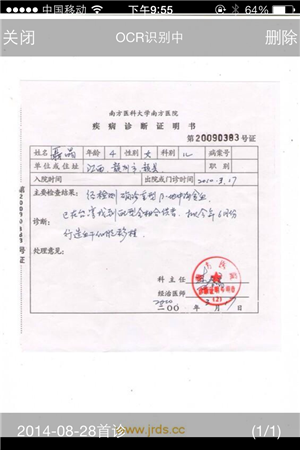 中国移动 下午9:55 64%
关闭 OCR识别中 删除
南方医科大学南方医院
疾病诊断证明书
第20090383号证
姓名 聂晶 年龄 4 性别 女 科别 儿 病案号
单位或住址 江西 赣州市 赣县 职别
入院时间 出院或门诊时间 2010.3.17
主要检查结果: 经检测 确诊重型β-地中海贫血
已在台湾找到 合 供者 拟今年6月份
诊断: 行造血干细胞移植
处理意见:
科主任
经治医师
二00 年 月 日
第20090383号证
2014-08-28首诊 (1/1)
www.jrds.cc